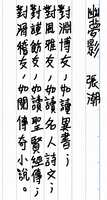 幽夢影　張潮
對淵博友，如讀異書；
對風雅友，如讀名人詩文；
對謹飭友，如讀聖賢經傳；
對滑稽友，如閱傳奇小說。